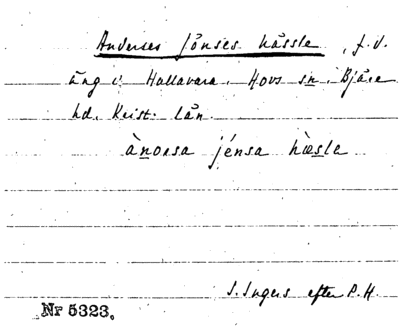 Anderses Jönses hässle, f.d.
äng i Hallavara, Hovs sn, Bjäre
hd. Krist. län.
ànorsa jénsa hæ̀sla
I. Ingers efter P.H.
Nr 5323.